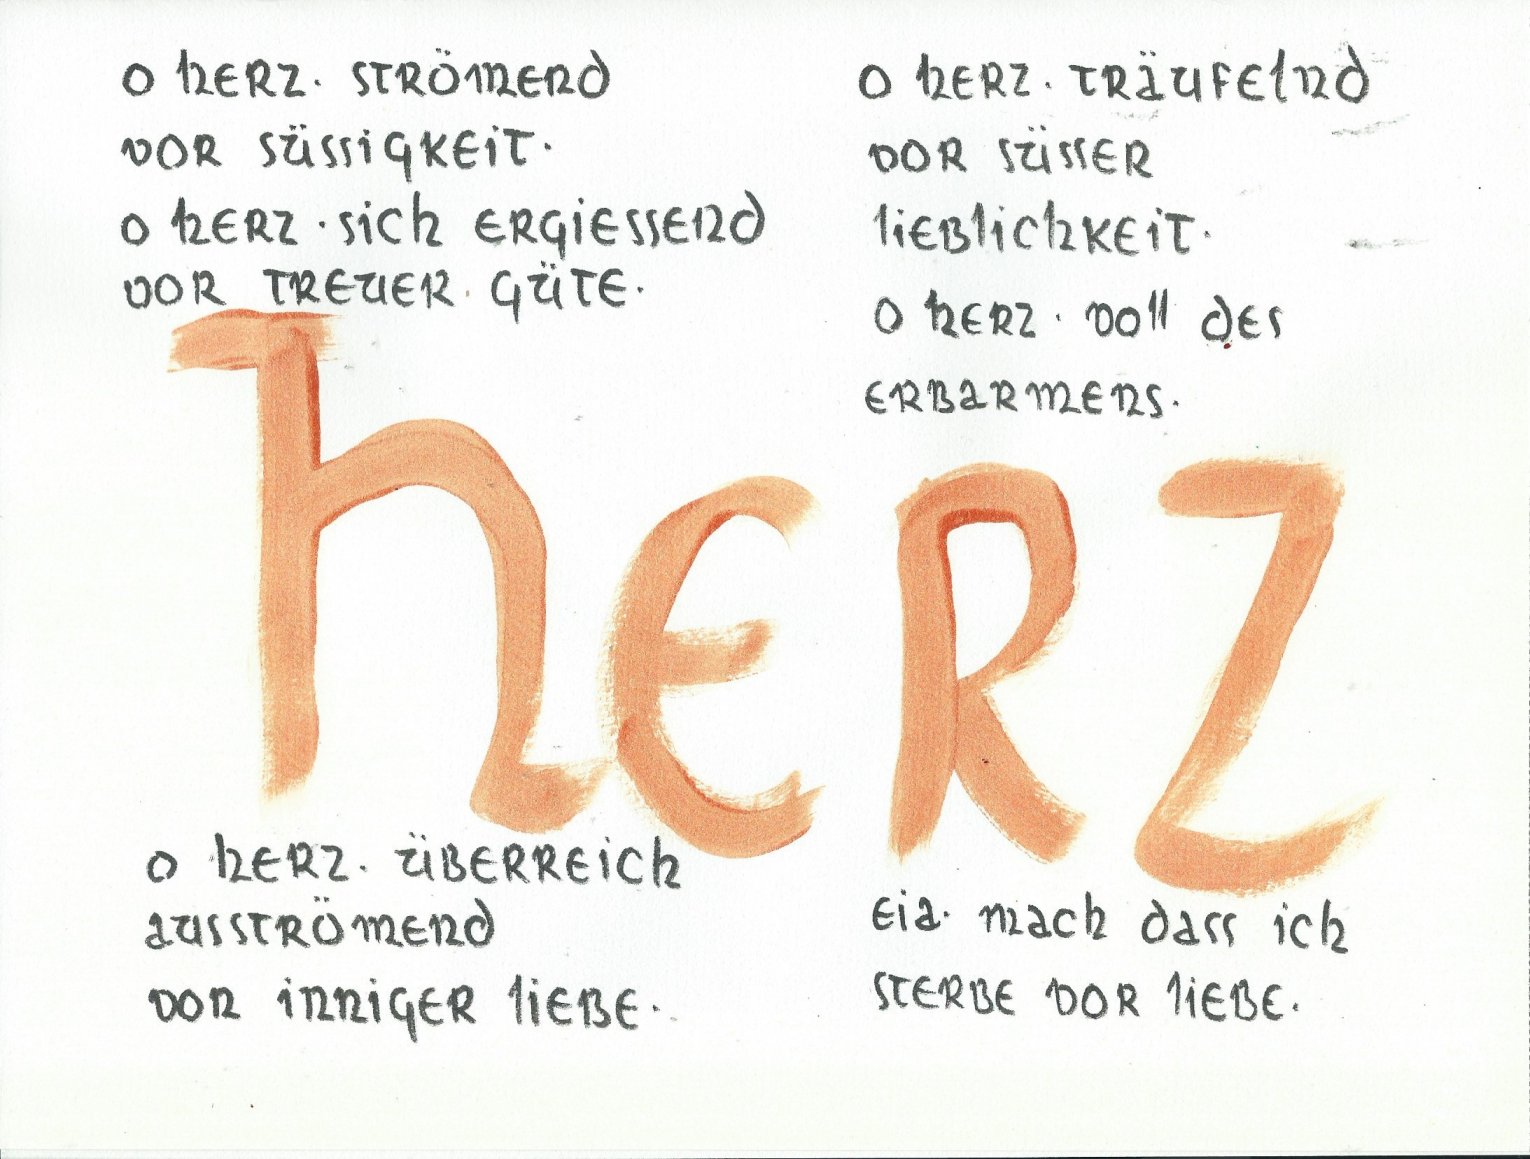 o herz. strömend
vor süssigkeit.
o herz. sich ergiessend
vor treuer güte.
o herz. träufelnd
vor süsser
lieblichkeit.
o herz. voll des
erbarmens.
herz
o herz. überreich
ausströmend
von inniger liebe.
eia. mach dass ich
sterbe vor liebe.